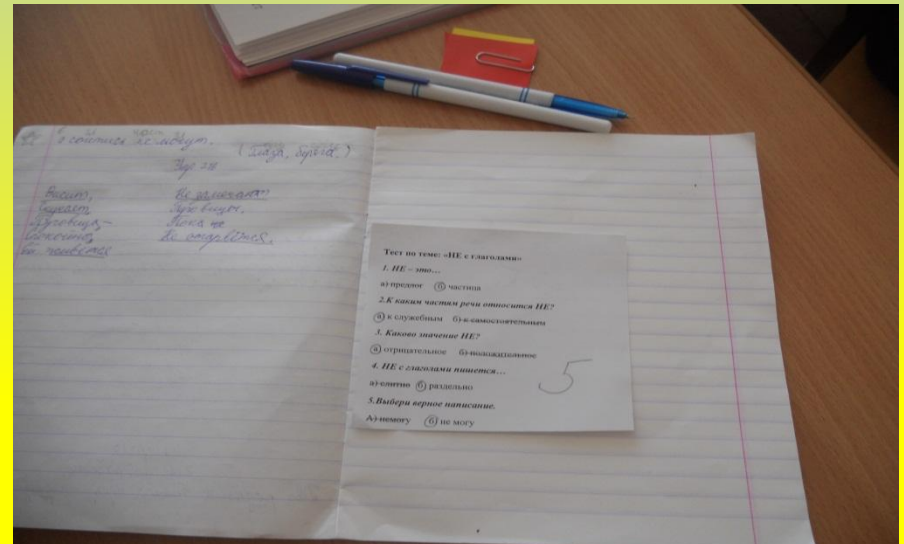 а сойтись не могут.
(Глаза, берега.)
Упр 238
Висит,
Пуговица, –
Не замечают
пуговицы,
Пока не
Не оторвётся.
Тест по теме: «НЕ с глаголами»
1. НЕ – это…
а) предлог б) частица
2.К каким частям речи относится НЕ?
а) к служебным б) к самостоятельным
3. Каково значение НЕ?
а) отрицательное б) положительное
4. НЕ с глаголами пишется…
а) слитно б) раздельно
5.Выбери верное написание.
А) немогу б) не могу
5